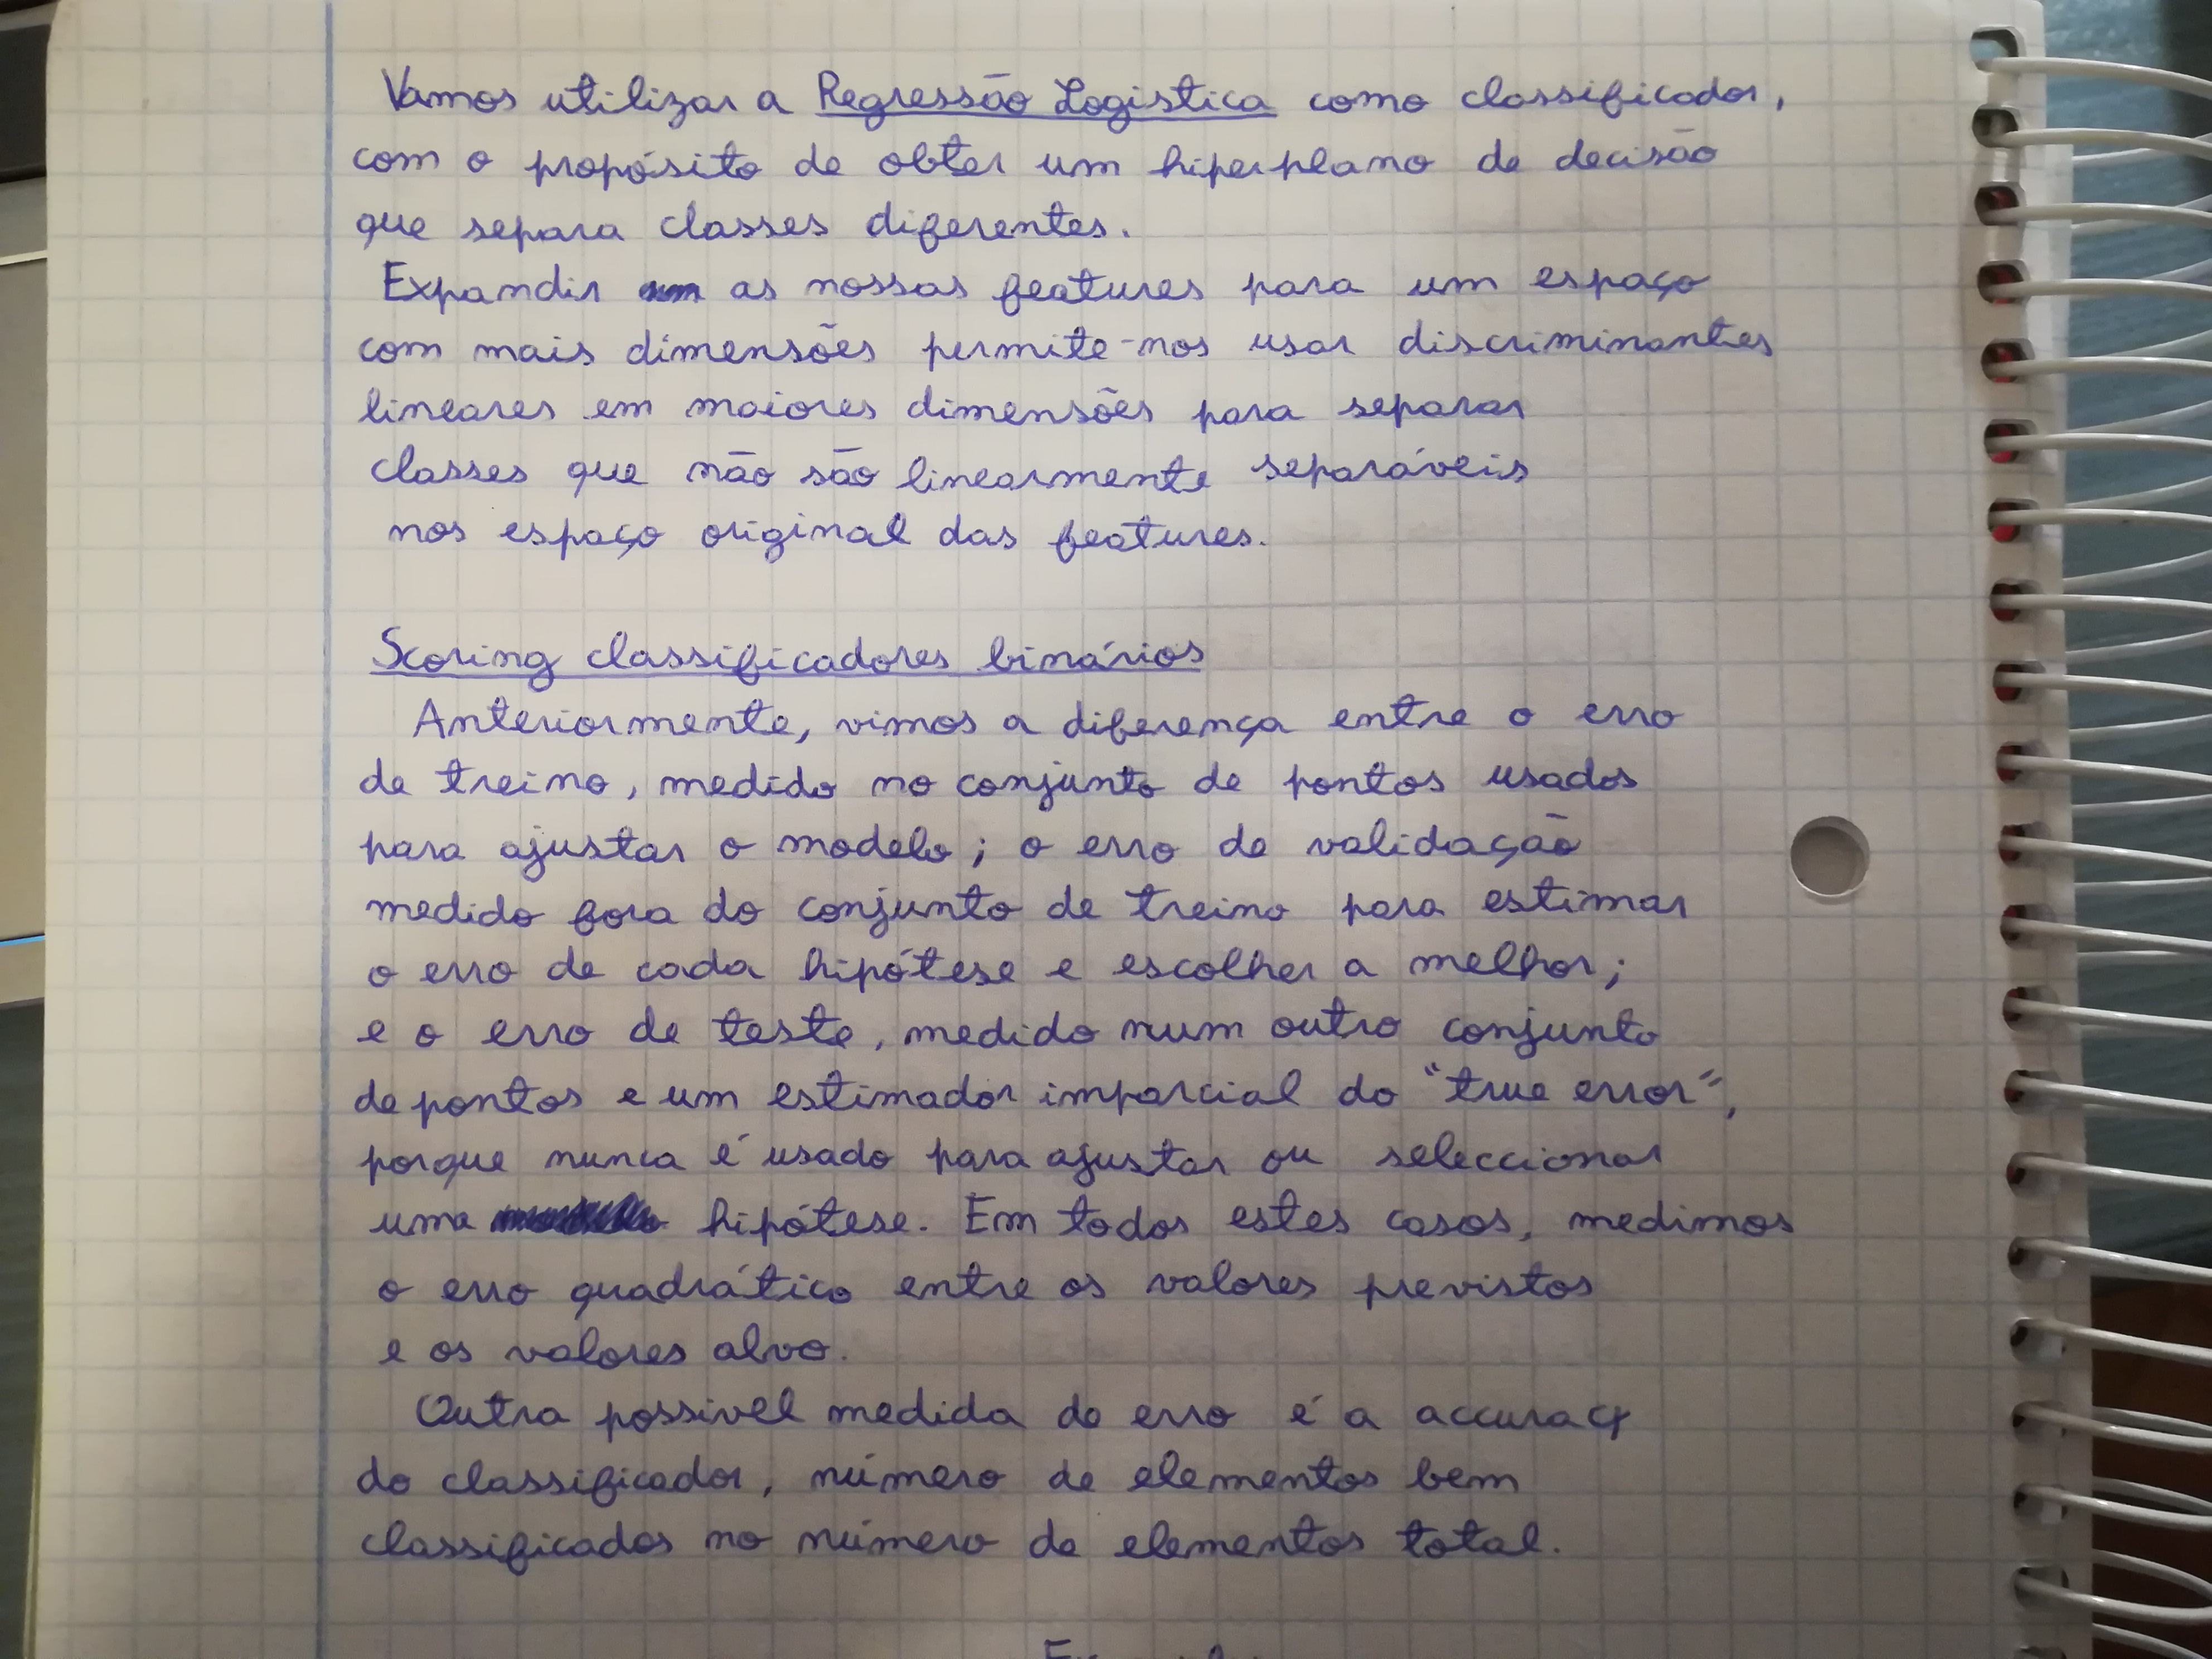 Vamos utilizar a Regressão Logistica como classificador,
com o propósito de obter um hiperplano de decisão
que separa classes diferentes.
Expandir as nossas features para um espaço
com mais dimensões permite-nos usar discriminantes
lineares em maiores dimensões para separar
classes que não são linearmente separáveis
nos espaço original das features.
Scoring classificadores binários
Anteriormente, vimos a diferença entre o erro
de treino, medido no conjunto de pontos usados
para ajustar o modelo; o erro de validação
medido fora do conjunto de treino para estimar
o erro de cada hipótese e escolher a melhor;
e o erro de teste, medido num outro conjunto
de pontos e um estimador imparcial do "true error",
porque nunca é usado para ajustar ou seleccionar
uma hipótese. Em todos estes casos, medimos
o erro quadrático entre os valores previstos
e os valores alvo.
Outra possivel medida de erro é a accuracy
do classificador, número de elementos bem
classificados no número de elementos total.